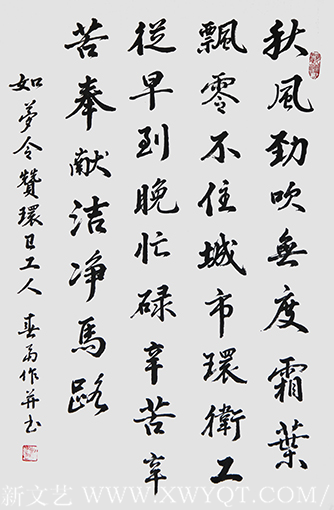 秋風勁吹無度霜葉
飄零不住城市環衛工
從早到晚忙碌辛苦辛
苦奉獻洁净馬路
如夢令贊環卫工人 春作并书
新文艺 WWW.XWYQT.COM